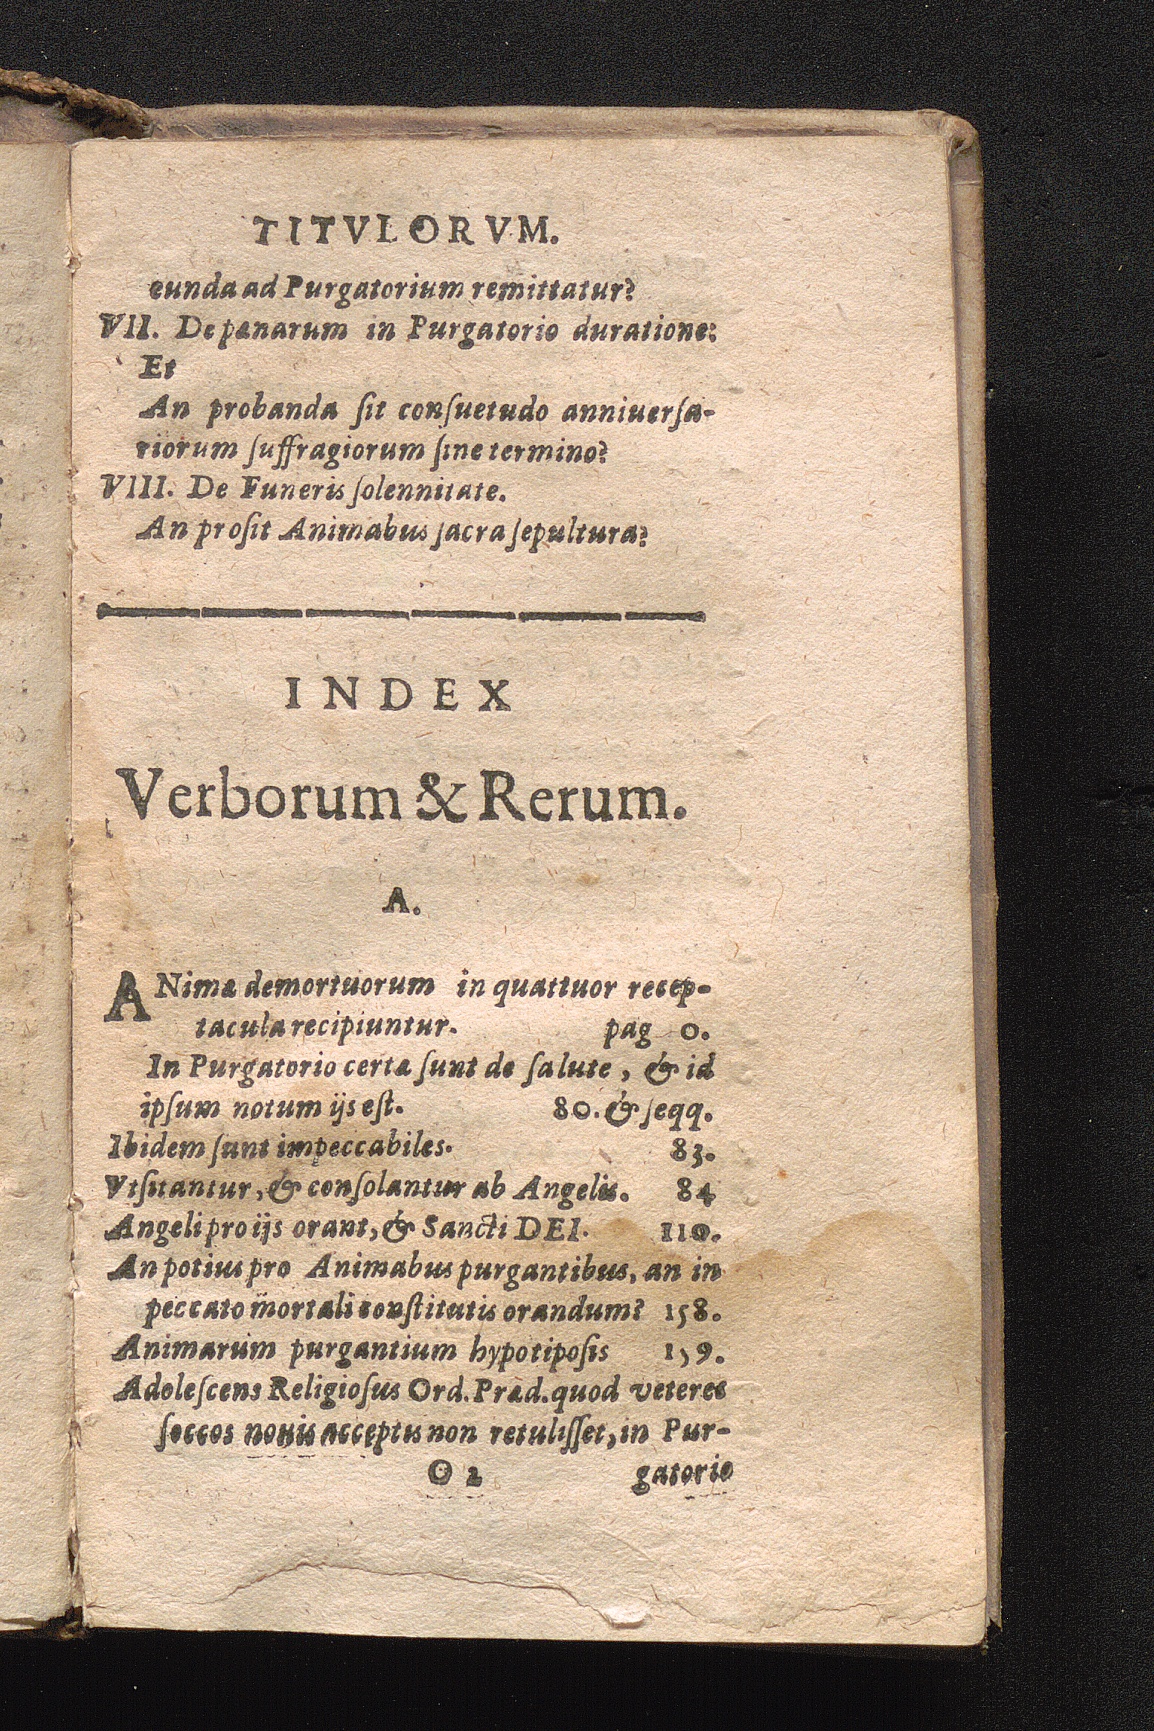 TITVLORVM.
eunda ad Purgatorium remittatur?
VII. De pænarum in Purgatorio duratione:
Et
An probanda ſit conſuetudo anniuerſa-
riorum ſuffragiorum ſine termino?
VIII. De Funeris ſolennitate.
An proſit Animabus ſacra ſepultura?
INDEX
Verborum & Rerum.
A.
ANimæ demortuorum in quattuor recep-
tacula recipiuntur. pag 0.
In Purgatorio certæ ſunt de ſalute, & id
ipſum notum ijs eſt. 80. & ſeqq.
Ibidem ſunt impeccabiles. 83.
Vtſitantur, & conſolantur ab Angelis. 84
Angeli pro ijs orant, & Sancti DEI. 110.
An potius pro Animabus purgantibus, an in
peccato mortali conſtitutis orandum? 158.
Animarum purgantium hypotipoſis 159.
Adoleſcens Religioſus Ord. Præd. quod veteres
ſoccos nouis acceptis non retuliſſet, in Pur-
O 2 gatorio